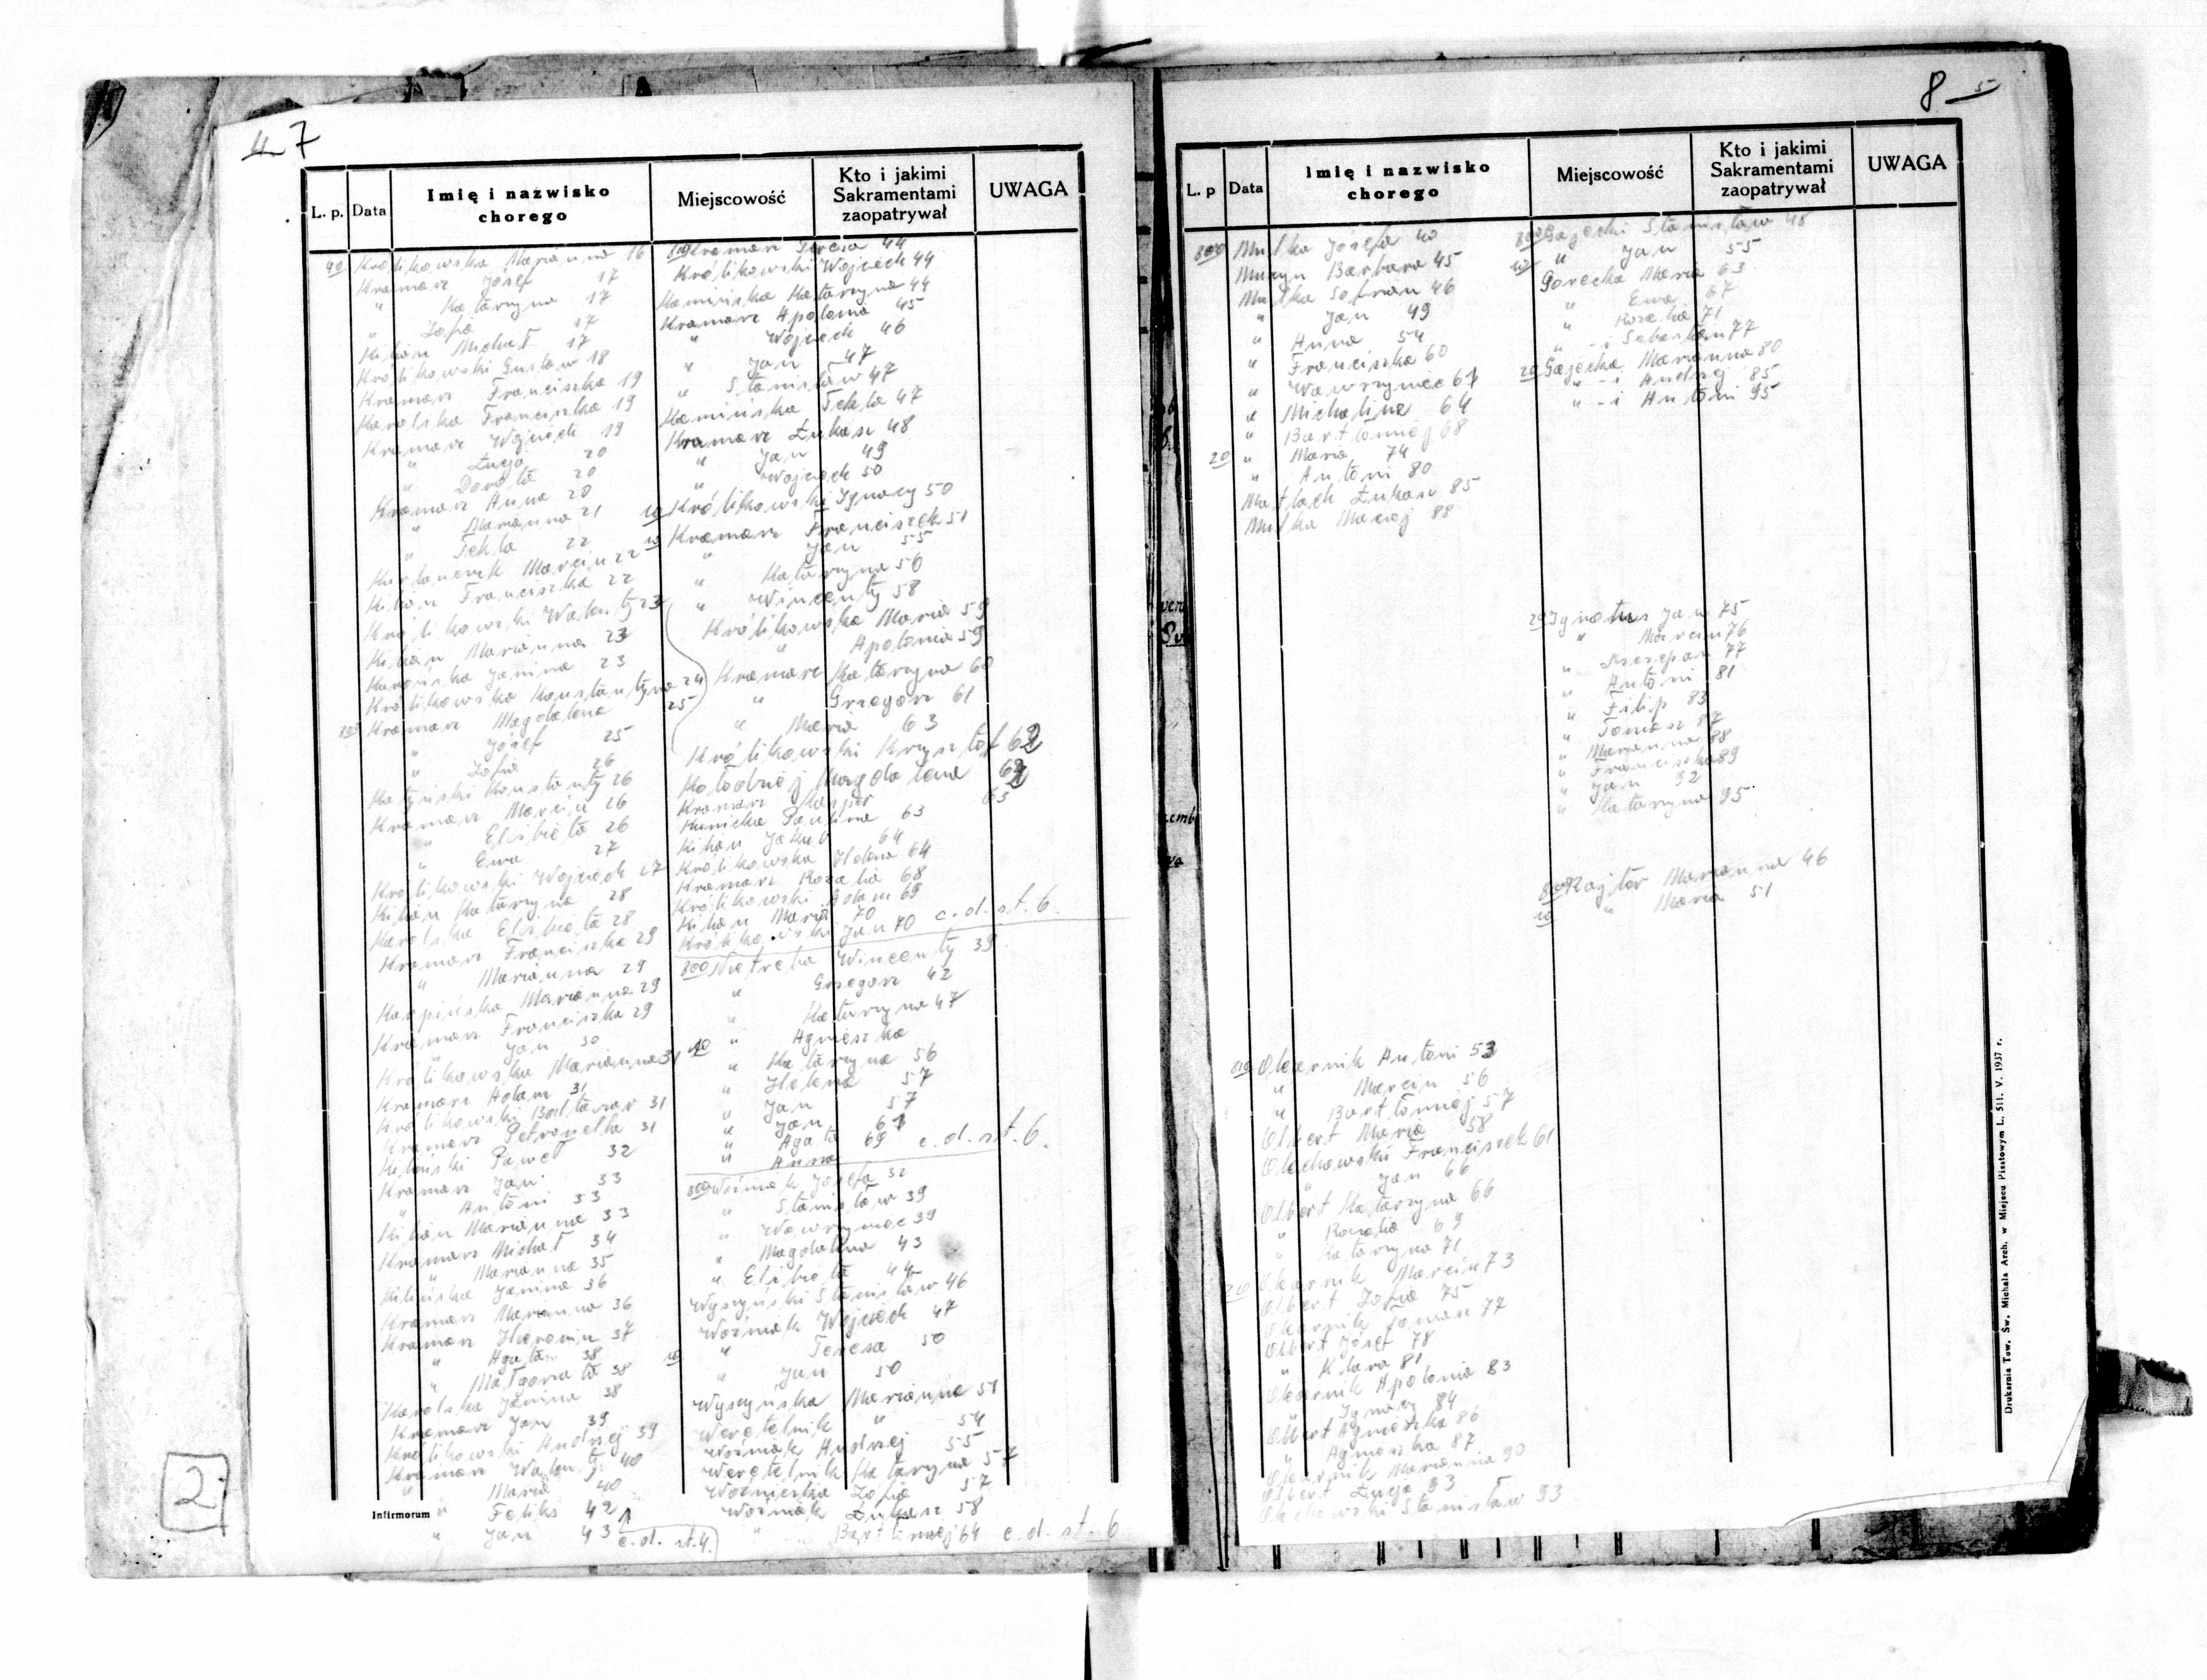 4 7
L. p.
Data
Imię i nazwisko
chorego
Miejscowość
Kto i jakimi
Sakramentami
zaopatrywał
UWAGA
Królikowska Marianna 16
Kramarz Józef 17
" Katarzyna 17
" Zofia 17
Kilian Michał 17
Królikowski Gustaw 18
Kramarz Franciszka 19
Karolska Franciszka 19
Kramarz Wojciech 19
" Łucja 20
" Dorota 20
Kramarz Anna 20
" Marianna 21
" Tekla 22
Marcin 22
Kilian Franciszka 22
Królikowski Walenty 23
Kilian Marianna 23
Janina 23
Królikowska Konstantyna 24
Kramarz Magdalena 25
" Józef 25
" Zofia 26
Konstanty 26
Kramarz Marcin 26
" Elżbieta 26
" Ewa 27
Królikowski Wojciech 27
Kilian Katarzyna 28
Karolska Elżbieta 28
Kramarz Franciszka 29
" Marianna 29
Karpińska Marianna 29
Kramarz Franciszka 29
" Jan 30
Królikowska Marianna 31
Kramarz Adam 31
Królikowski Baltazar 31
Kramarz Petronella 31
Kiliński Paweł 32
Kramarz Jan 33
" Antoni 33
Kilian Marianna 33
Kramarz Michał 34
" Marianna 35
Kilińska Janina 36
Kramarz Marianna 36
Kramarz Hieronim 37
" Agata 38
" Małgorzata 38
Karolska Janina 38
Kramarz Jan 39
Królikowski Andrzej 39
Kramarz Walenty 40
" Maria 40
" Feliks 42
" Jan 43 c.d. st. 4.
Infirmorum
2
Kramarz Teresa 44
Królikowski Wojciech 44
Kamińska Katarzyna 44
Kramarz Apolonia 45
" Wojciech 46
" Jan 47
" Stanisław 47
Kamińska Tekla 47
Kramarz Łukasz 48
" Jan 49
" Wojciech 50
Królikowski Ignacy 50
Kramarz Franciszek 51
" Jan 55
" Katarzyna 56
" Wincenty 58
Królikowska Maria 59
" Apolonia 59
Kramarz Katarzyna 60
" Grzegorz 61
" Maria 63
Królikowski Krzysztof 62
Kołodziej Magdalena 62
Kramarz Kasper 63
Kunicka Paulina 63
Kilian Jakub 64
Królikowska Helena 64
Kramarz Rozalia 68
Królikowski Adam 69
Kilian Maria 70
Królikowski Jan 70 c.d. st. 6.
800 Nietreba Wincenty 39
" Grzegorz 42
" Katarzyna 47
" Agnieszka
" Katarzyna 56
" Helena 57
" Jan 57
" Jan 61
" Agata 69 c.d. st. 6.
" Anna
800 Woźniak Józefa 32
" Stanisław 39
" Wawrzyniec 39
" Magdalena 43
" Elżbieta 44
Wyszyński Stanisław 46
Woźniak Wojciech 47
" Teresa 50
" Jan 50
Wyszyńska Marianna 51
Weretelnik " 54
Woźniak Andrzej 55
Weretelnik Katarzyna 57
Woźniacka Zofia 57
Woźniak Łukasz 58
" Bartłomiej 64 c.d. st. 6
8 5
L. p
Data
Imię i nazwisko
chorego
Miejscowość
Kto i jakimi
Sakramentami
zaopatrywał
UWAGA
800 Mulka Józefa 40
Muzyn Barbara 45
Mulka 46
" Jan 49
" Anna 54
" Franciszka 60
" Wawrzyniec 61
" Michalina 64
" Bartłomiej 68
20 " Maria 74
" Antoni 80
Matlach Łukasz 85
Mulka Maciej 88
810 Olearnik Antoni 53
" Marcin 56
" Bartłomiej 57
Olbert Maria 58
Olechowski Franciszek 61
" Jan 66
Olbert Katarzyna 66
" Rozalia 69
" Katarzyna 71
Olearnik Marcin 73
Olbert Zofia 75
Olearnik Tomasz 77
Olbert Józef 78
" Klara 81
Olearnik Apolonia 83
" Ignacy 84
Olbert Agnieszka 86
" Agnieszka 87
Olearnik Marianna 90
Olbert Łucja 93
Olechowski Stanisław 93
Gajecki Stanisław 48
" Jan 55
Gorecka Maria 63
" Ewa 67
" Rozalia 71
" -i Sebastian 77
20 Gajecka Marianna 80
" -i Andrzej 85
" -i Antoni 95
20 Ignatus Jan 75
" Marcin 76
" Szczepan 77
" Antoni 81
" Filip 83
" Tomasz 87
" Marianna 88
" Franciszka 89
" Jan 92
" Katarzyna 95
Rajter Marianna 46
" Maria 51
Drukarnia Tow. Św. Michała Arch. w Miejscu Piastowym L. 511. V. 1937 r.